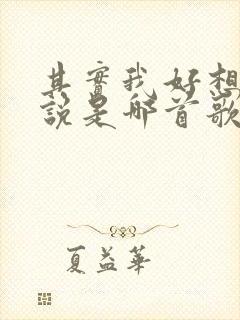 其實我好想
說是那首歌
夏益華